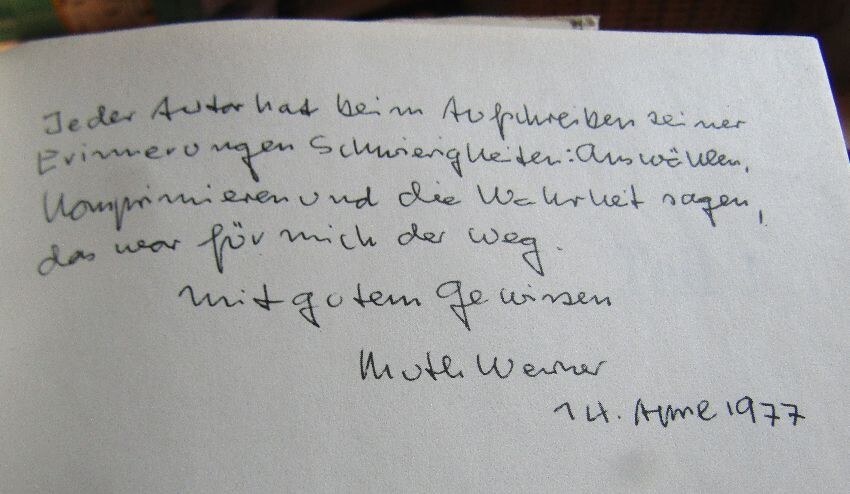 Jeder Autor hat beim Aufschreiben seiner
Erinnerungen Schwierigkeiten: Auswählen,
Komprimieren und die Wahrheit sagen,
das war für mich der Weg.
Mit gutem Gewissen
Ruth Werner
14. April 1977